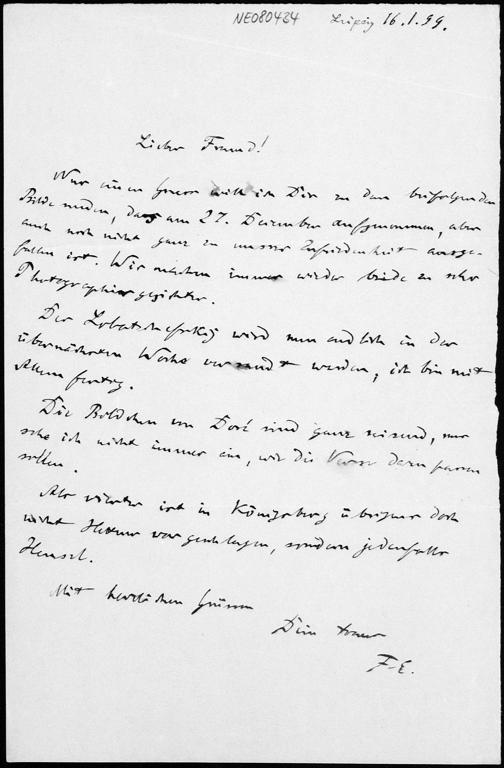 NE080484 Leipzig 16.1.99.
Lieber Freund!
Nur einen Gruss will ich Dir zu dem beifolgenden
Bilde senden, das am 27. Dezember aufgenommen, aber
auch noch nicht ganz zu unserer Zufriedenheit ausge-
fallen ist. Wir machen immer wieder beide zu sehr
Photographiegesichter.
Der Lobatschefskij wird nun endlich in der
übernächsten Woche versandt werden, ich bin mit
Allem fertig.
Die Bildchen von Doré sind ganz reizend, nur
sehe ich nicht immer ein, wie die Verse dazu passen
sollen.
Als vierter ist in Königsberg übrigens doch
nicht vorgeschlagen, sondern jedenfalls
Hensel.
Mit herzlichen Grüssen
Dein treuer
F.E.